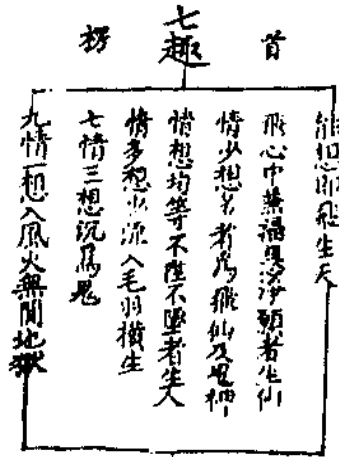 首
七趣
楞
想即飛生天
飛心中兼福慧及淨願者生仙
情少想多者為飛仙及鬼神
情想均等不陞不墜者生人
情多想少流入毛羽橫生
七情三想沉為鬼
九情一想入風火無間地獄